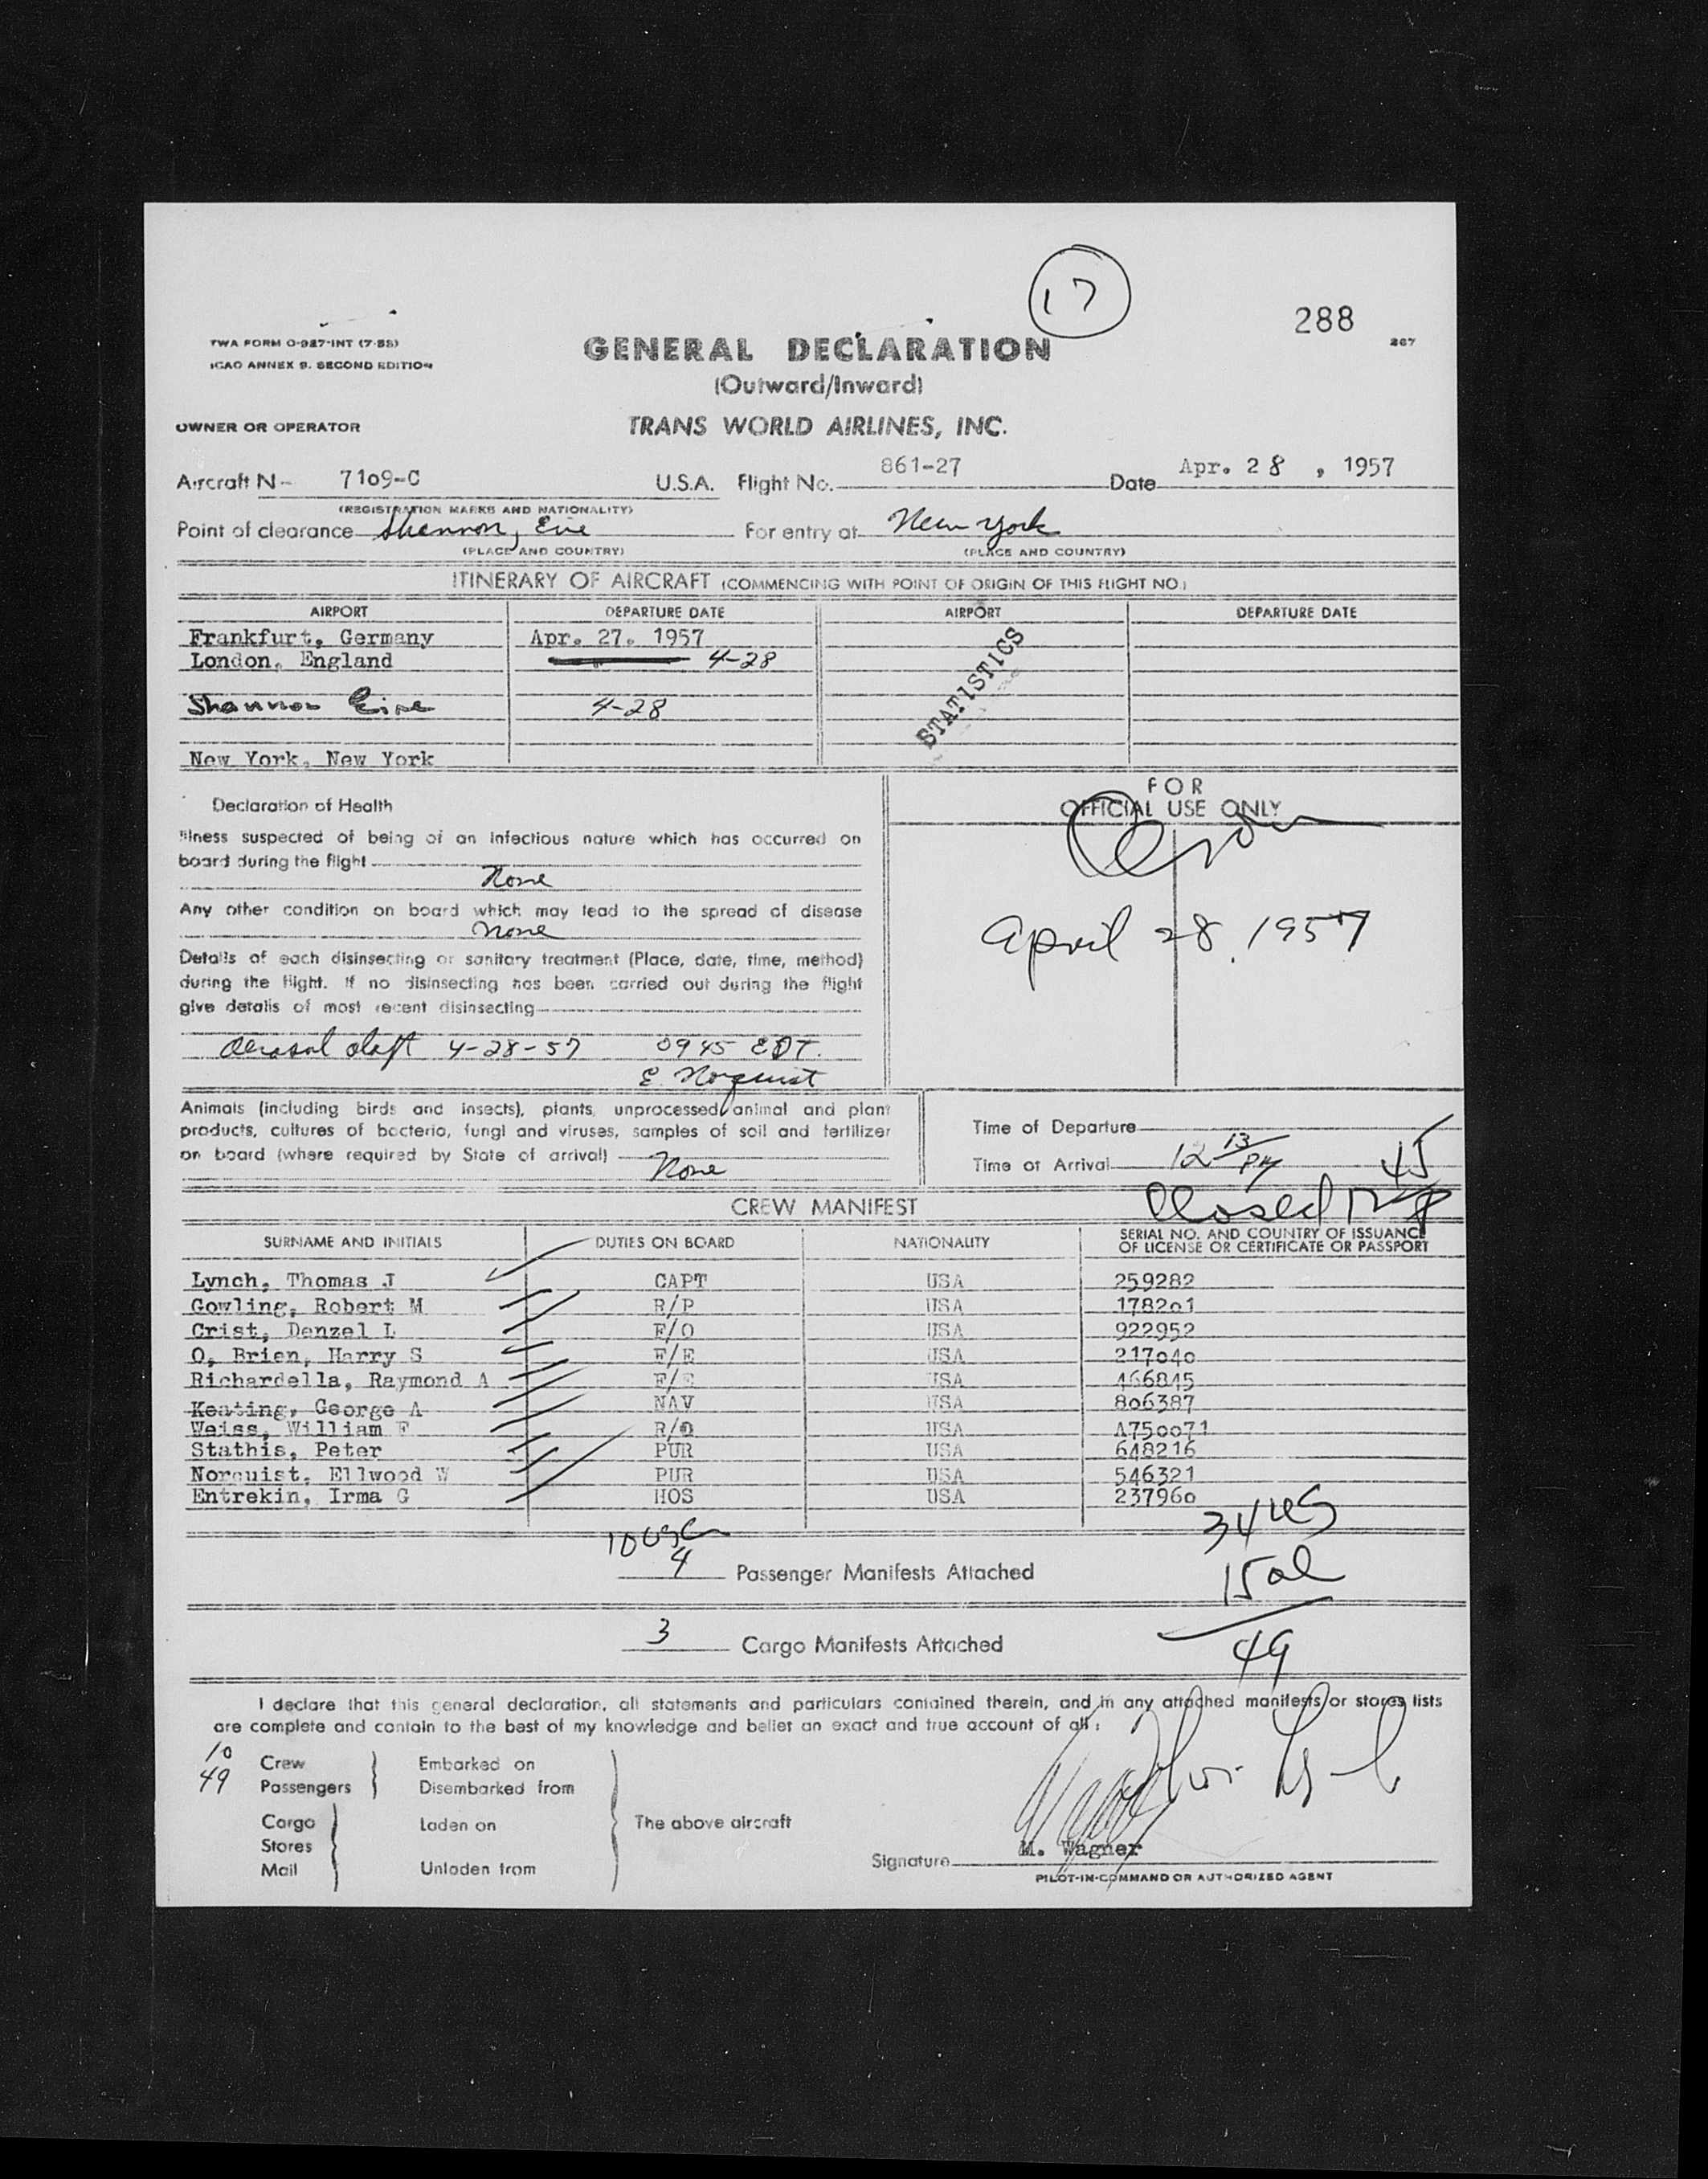 17
288
TWA FORM O-927-INT (7-55)
ICAO ANNEX 9. SECOND EDITION
GENERAL DECLARATION
267
(Outward/Inward)
OWNER OR OPERATOR
TRANS WORLD AIRLINES, INC.
Aircraft N- 7109-C U.S.A. Flight No. 861-27 Date Apr. 28, 1957
(REGISTRATION MARKS AND NATIONALITY)
Point of clearance Shannon, Eire For entry at New York
(PLACE AND COUNTRY) (PLACE AND COUNTRY)
ITINERARY OF AIRCRAFT (COMMENCING WITH POINT OF ORIGIN OF THIS FLIGHT NO.)
AIRPORT DEPARTURE DATE AIRPORT DEPARTURE DATE
Frankfurt, Germany Apr. 27. 1957
London, England 4-28
STATISTICS
Shannon Eire 4-28
New York, New York
FOR
OFFICIAL USE ONLY
Declaration of Health
Illness suspected of being of an infectious nature which has occurred on
board during the flight
None
Any other condition on board which may lead to the spread of disease
None
April 28, 1957
Details of each disinsecting or sanitary treatment (Place, date, time, method)
during the flight. If no disinsecting has been carried out during the flight
give details of most recent disinsecting
aerosol 4-28-57 0945 EDT.
E Norquist
Animals (including birds and insects), plants, unprocessed animal and plant
products, cultures of bacteria, fungi and viruses, samples of soil and fertilizer
on board (where required by State of arrival)
None
Time of Departure
Time of Arrival 12 13 PM
45
Closed
CREW MANIFEST
SURNAME AND INITIALS DUTIES ON BOARD NATIONALITY SERIAL NO. AND COUNTRY OF ISSUANCE
OF LICENSE OR CERTIFICATE OR PASSPORT
Lynch, Thomas J CAPT USA 259282
Gowling, Robert M R/P USA 178201
Crist, Denzel L F/O USA 922952
O, Brien, Harry S F/E USA 217040
Richardella, Raymond A F/E USA 466845
Keating, George A NAV USA 806387
Weiss, William F R/O USA A750071
Stathis, Peter PUR USA 648216
Norquist, Ellwood W PUR USA 546321
Entrekin, Irma G HOS USA 237960
34 US
4 Passenger Manifests Attached
15 al
3 Cargo Manifests Attached
49
I declare that this general declaration, all statements and particulars contained therein, and in any attached manifests or stores lists
are complete and contain to the best of my knowledge and belief an exact and true account of all:
10 Crew Embarked on
49 Passengers Disembarked from
Cargo Laden on The above aircraft
Stores
Mail Unladen from
Signature M. Wagner
PILOT-IN-COMMAND OR AUTHORIZED AGENT